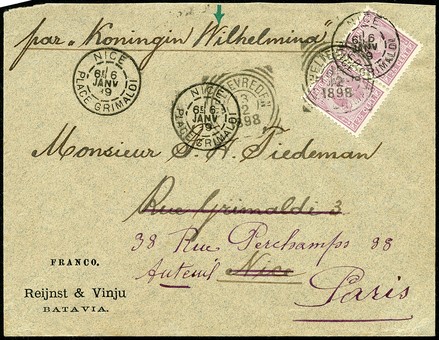 par „Koningin Wilhelmina"
NICE
6E 6
JANV
99
PLACE GRIMALDI
NICE
6E 6
JANV
99
PLACE GRIMALDI
NICE
6E 6
JANV
PLACE GRIMALDI
WELTEVREDEN
12
1898
EVREDEN
3
12
1898
Monsieur S. H. Tiedeman
Rue Grimaldi 3
38 Rue Perchamps 38
Auteuil Nice
Paris
FRANCO.
Reijnst & Vinju
BATAVIA.